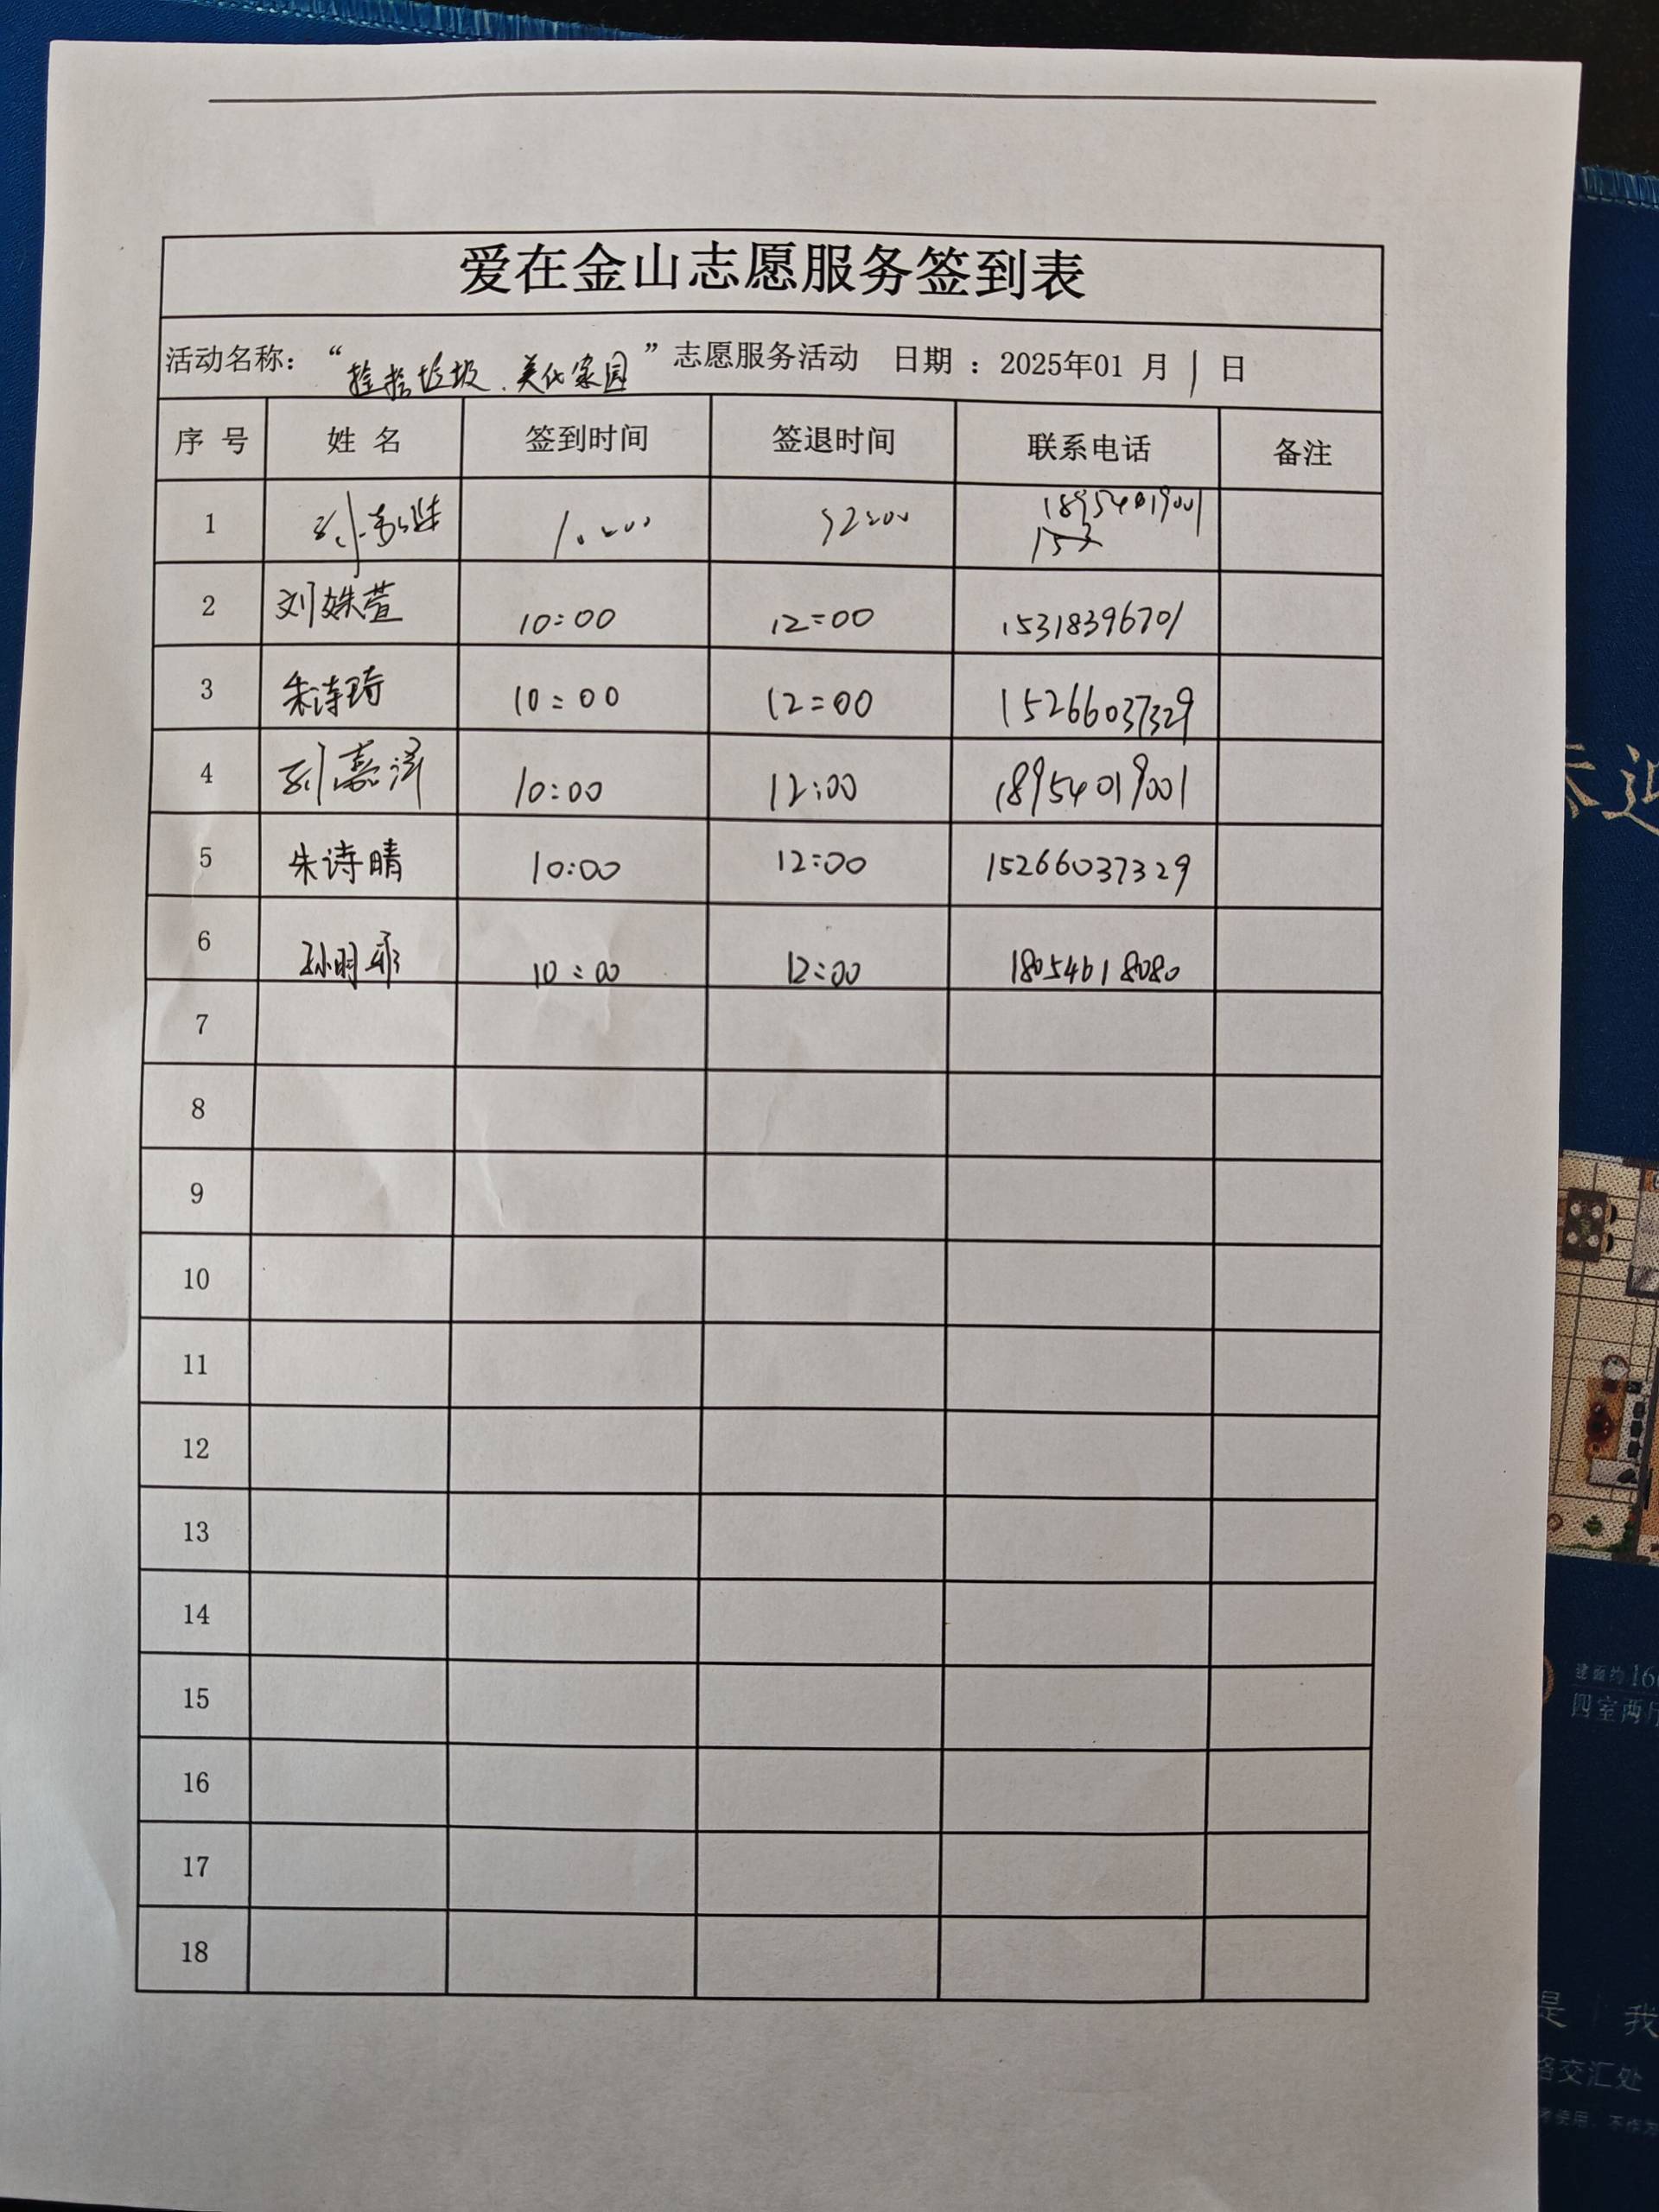 爱在金山志愿服务签到表
活动名称：“捡拾垃圾、美化家园”志愿服务活动 日期 ：2025年01 月 1 日
序 号 姓 名 签到时间 签退时间 联系电话 备注
1 刘 18954019001
2 刘姝萱 10:00 12:00 15318396701
3 朱诗琦 10:00 12:00 15266037329
4 刘嘉泽 10:00 12:00 18954019001
5 朱诗晴 10:00 12:00 15266037329
6 孙明 10:00 12:00 18054618080
7
8
9
10
11
12
13
14
15
16
17
18
建面约
四室两
是 我
路交汇处